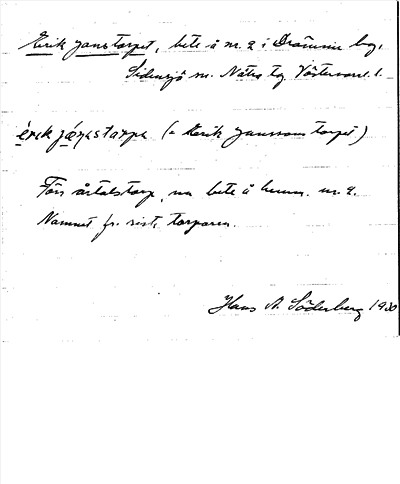 Erik Janstorpet, bete å nr. 2 i Drömme by,
Sidensjö sn. Nätra tg. Västernorrl. l.
érɩk jὰŋstɑrpə (= Kerik Janssons torpet)
Förr årtalstorp, nu bete å hemm. nr. 2.
Namnet fr. sista torparen.
Hans A. Söderberg 1930